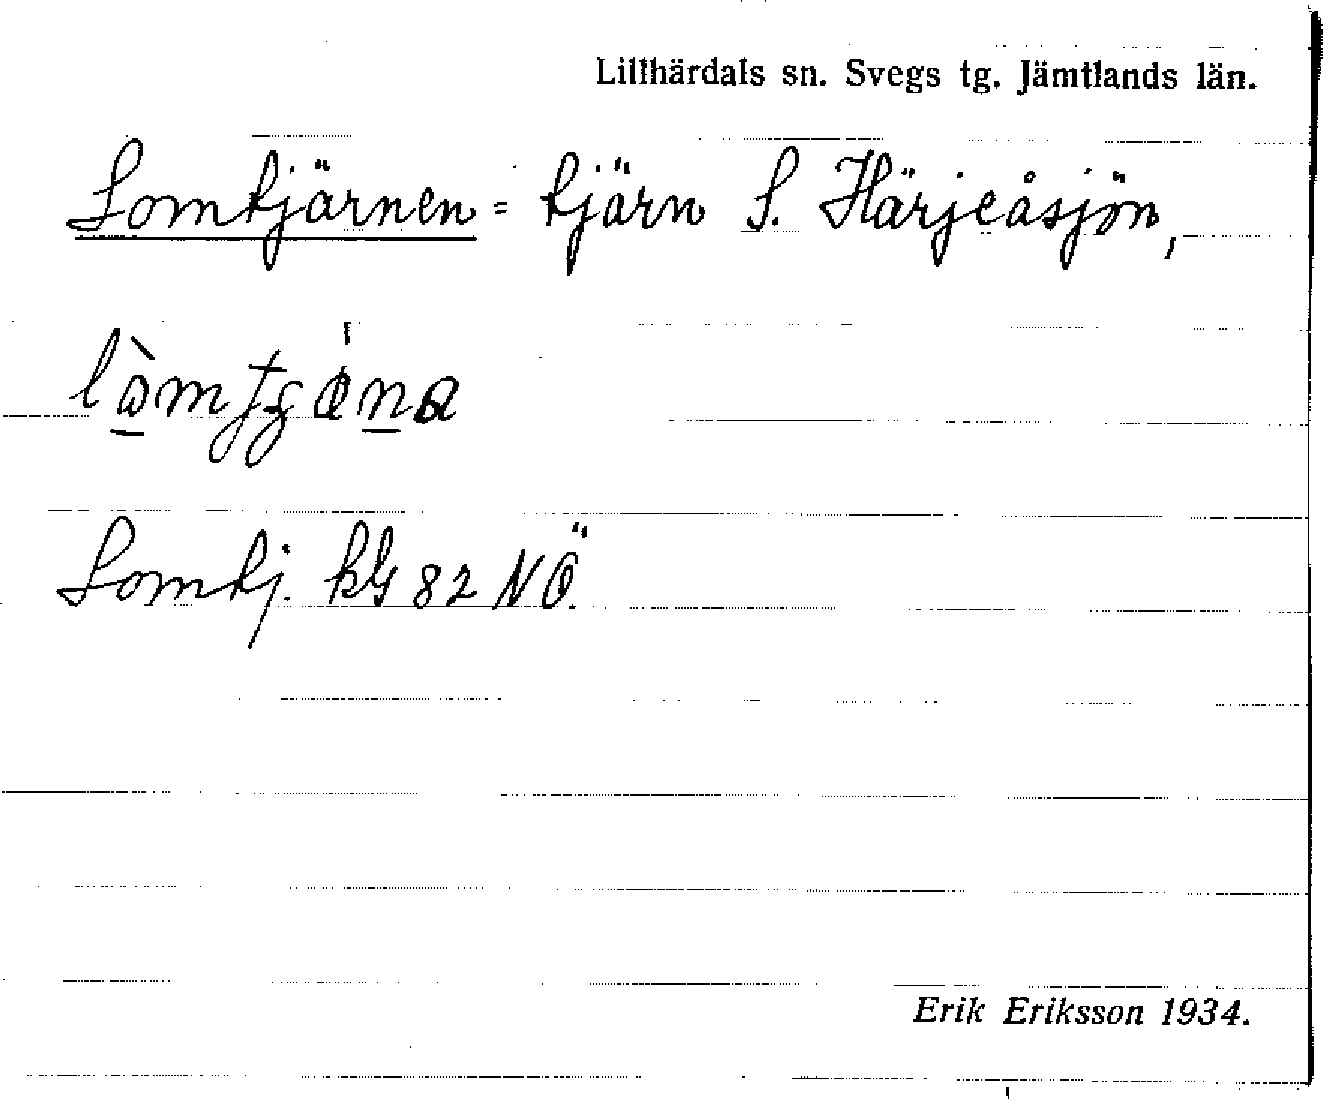 Lillhärdals sn. Svegs tg. Jämtlands län.
Lomtjärnen = tjärn S. Härjeåsjön,
Lomtj. kbl 82 NÖ.
Erik Eriksson 1934.